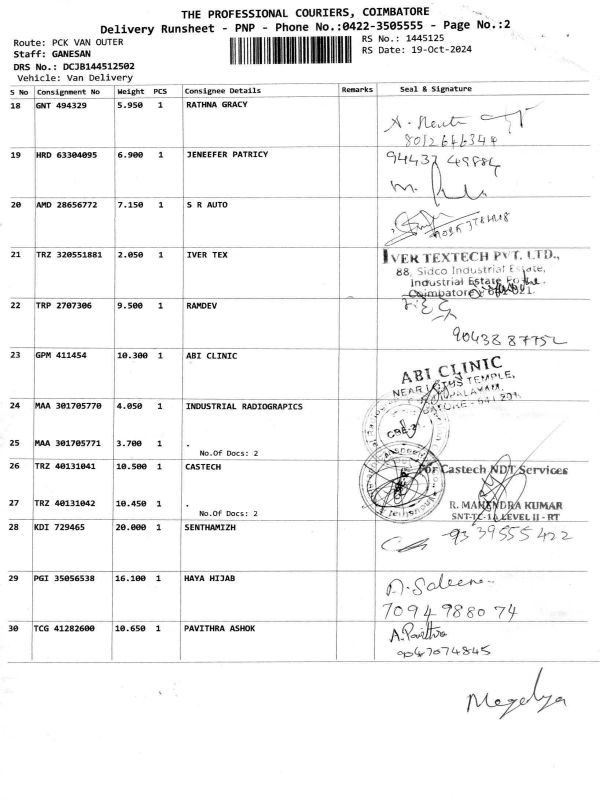 THE PROFESSIONAL COURIERS, COIMBATORE
Delivery Runsheet - PNP - Phone No.:0422-3505555 - Page No.:2
Route: PCK VAN OUTER
RS No.: 1445125
Staff: GANESAN
RS Date: 19-Oct-2024
DRS No.: DCJB144512502
Vehicle: Van Delivery
S No Consignment No Weight PCS Consignee Details Remarks Seal & Signature
18 GNT 494329 5.950 1 RATHNA GRACY
8012646344
19 HRD 63304095 6.900 1 JENEEFER PATRICY
94437 49884
20 AMD 28656772 7.150 1 S R AUTO
21 TRZ 320551881 2.050 1 IVER TEX
IVER TEXTECH PVT. LTD.,
88, Sidco Industrial Estate,
Industrial Estate
Coimbatore - 641 021.
22 TRP 2707306 9.500 1 RAMDEV
90438 87752
23 GPM 411454 10.300 1 ABI CLINIC
ABI CLINIC
NEAR LOTUS TEMPLE,
24 MAA 301705770 4.050 1 INDUSTRIAL RADIOGRAPICS
25 MAA 301705771 3.700 1 .
No.Of Docs: 2
26 TRZ 40131041 10.500 1 CASTECH
For Castech NDT Services
27 TRZ 40131042 10.450 1 .
No.Of Docs: 2
R. MAHENDRA KUMAR
SNT-TC-1A LEVEL II - RT
28 KDI 729465 20.000 1 SENTHAMIZH
93 39555 422
29 PGI 35056538 16.100 1 HAYA HIJAB
A. Saleena
70949 880 74
30 TCG 41282600 10.650 1 PAVITHRA ASHOK
A. Pavithra
9047074845